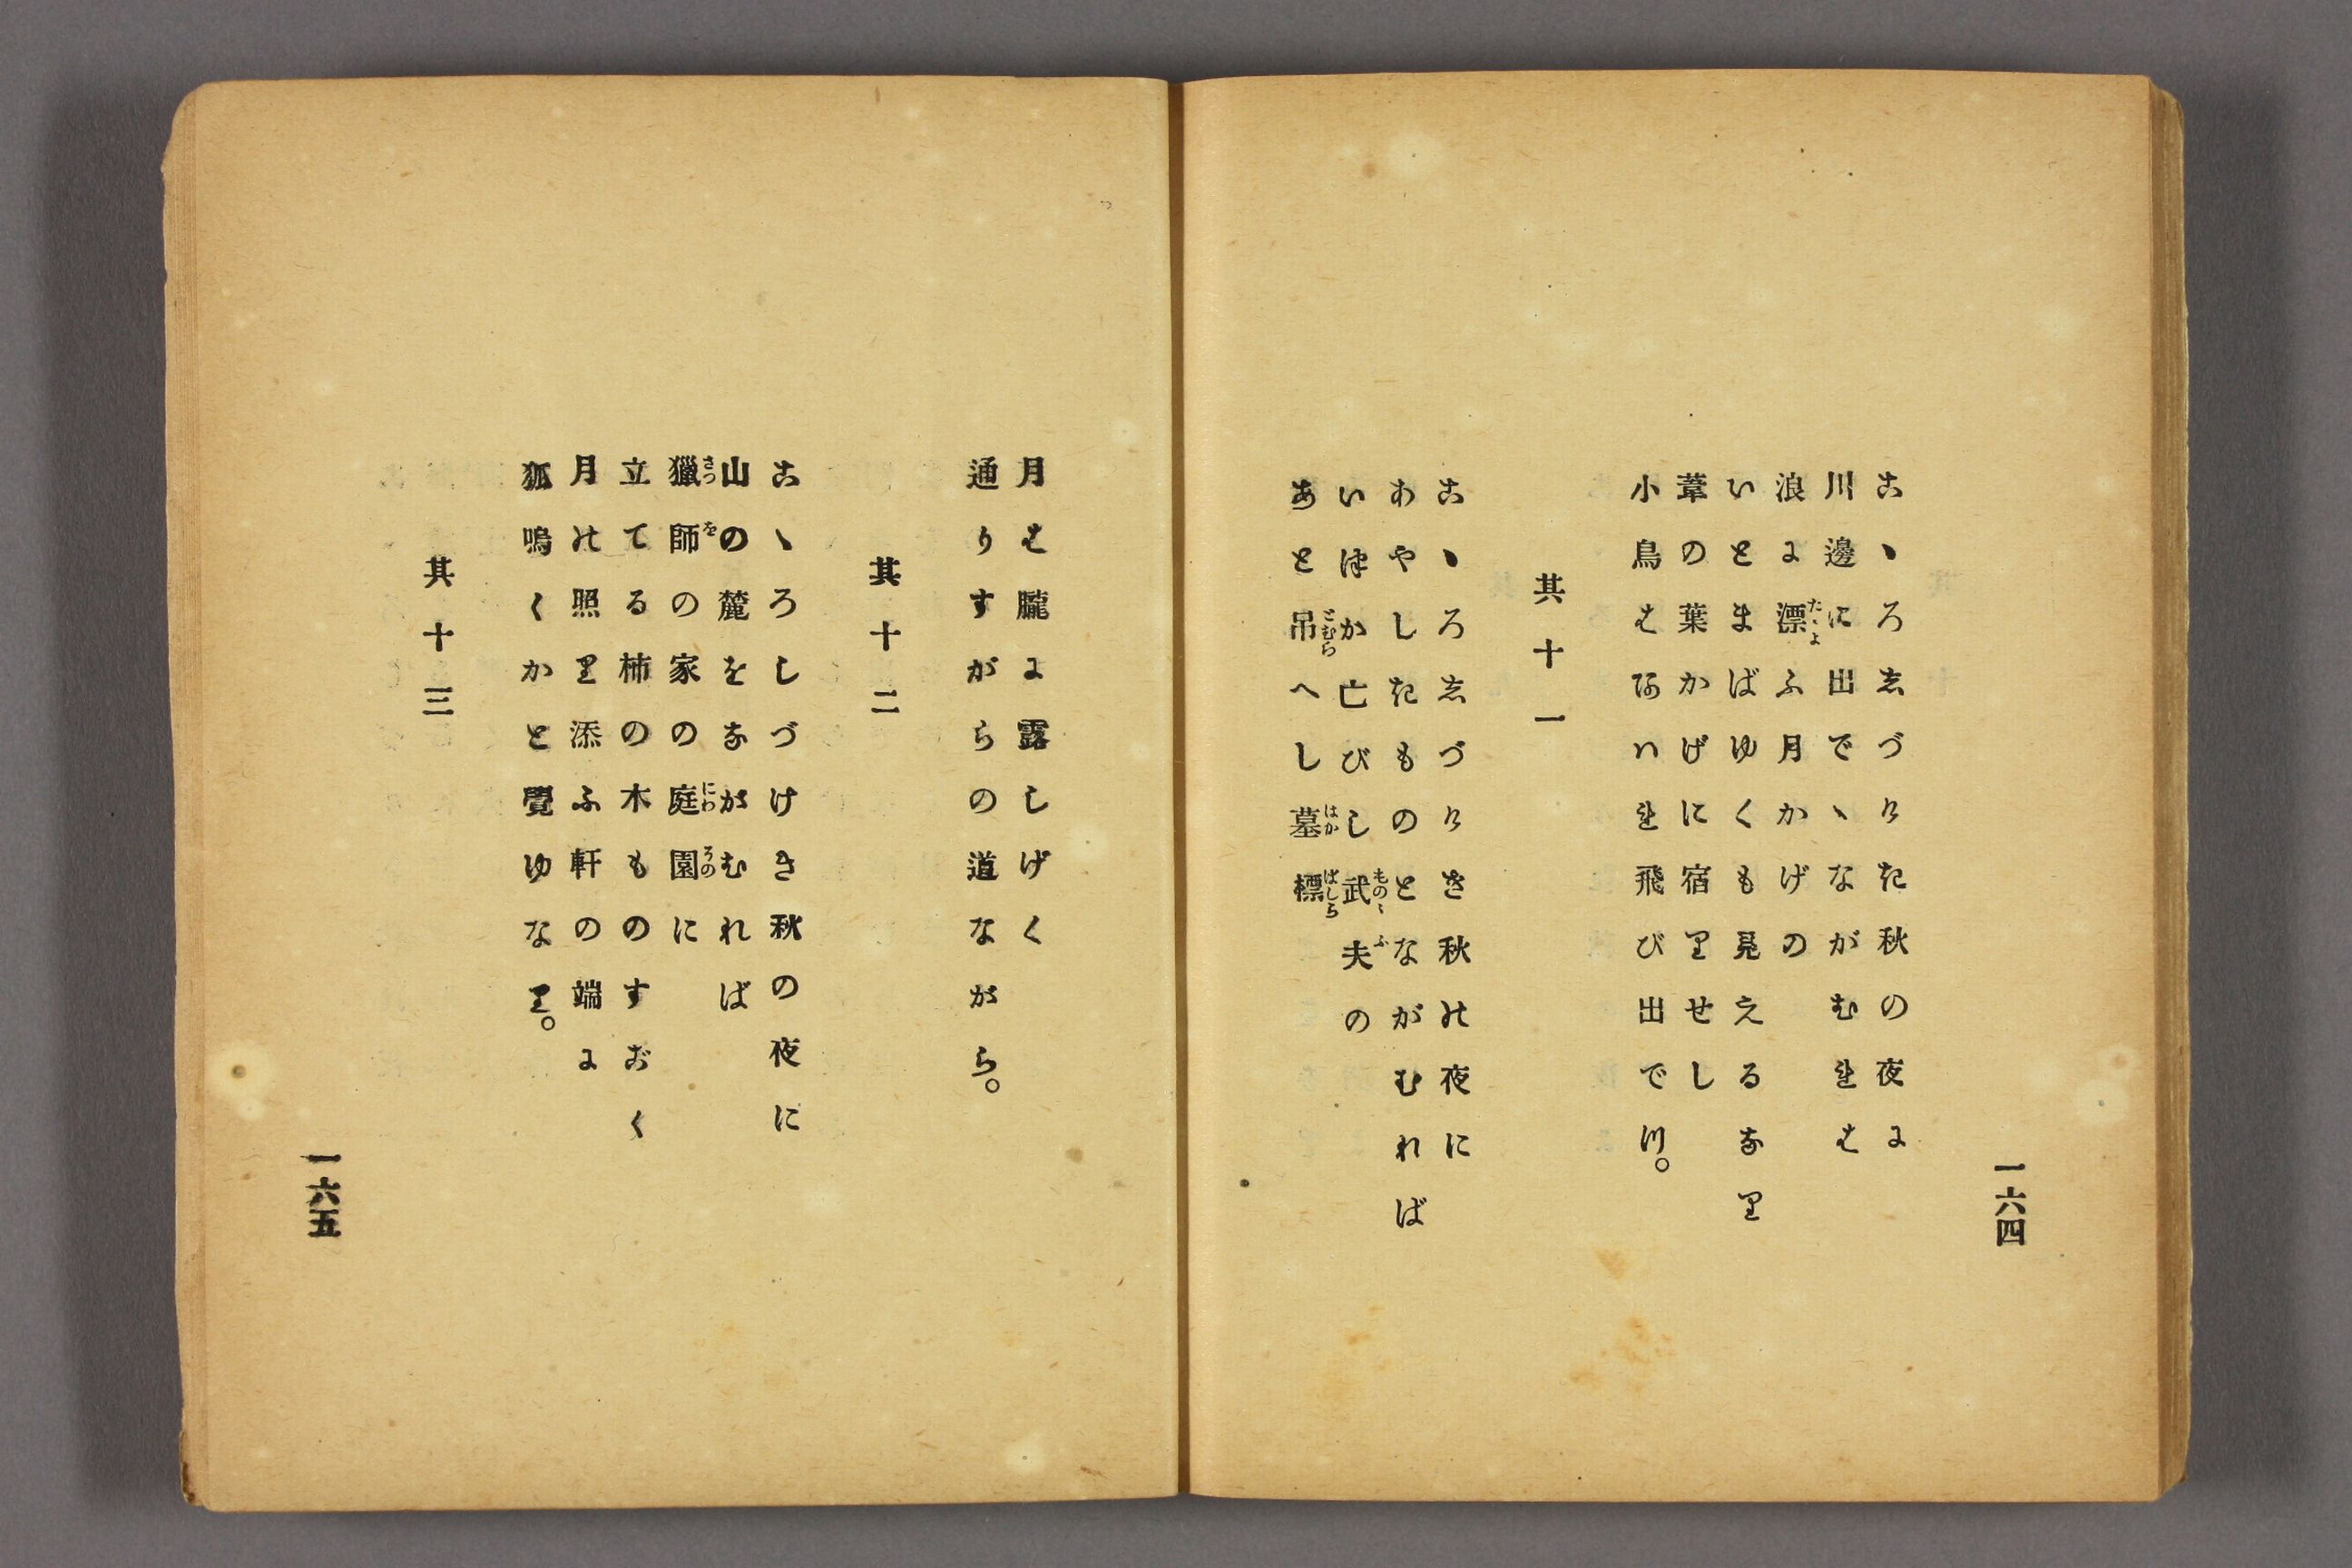 一六四
こゝろしづけき秋の夜に
川邊に出でゝながむれは
浪に漂ふ月かげの
いとまばゆくも見えるなり
葦の葉かげに宿りせし
小鳥はあハれ飛び出でつ。
其十一
こゝろしづけき秋の夜に
あやしきものとながむれば
いつか亡びし武夫の
あと吊へし墓標
月は朧に露しげく
通りすがらの道ながら。
其十二
こゝろしづけき秋の夜に
山の麓をながむれば
獵師の家の庭園に
立てる柿の木ものすごく
月の照り添ふ軒の端に
狐鳴くかと覺ゆなり。
其十三
一六五